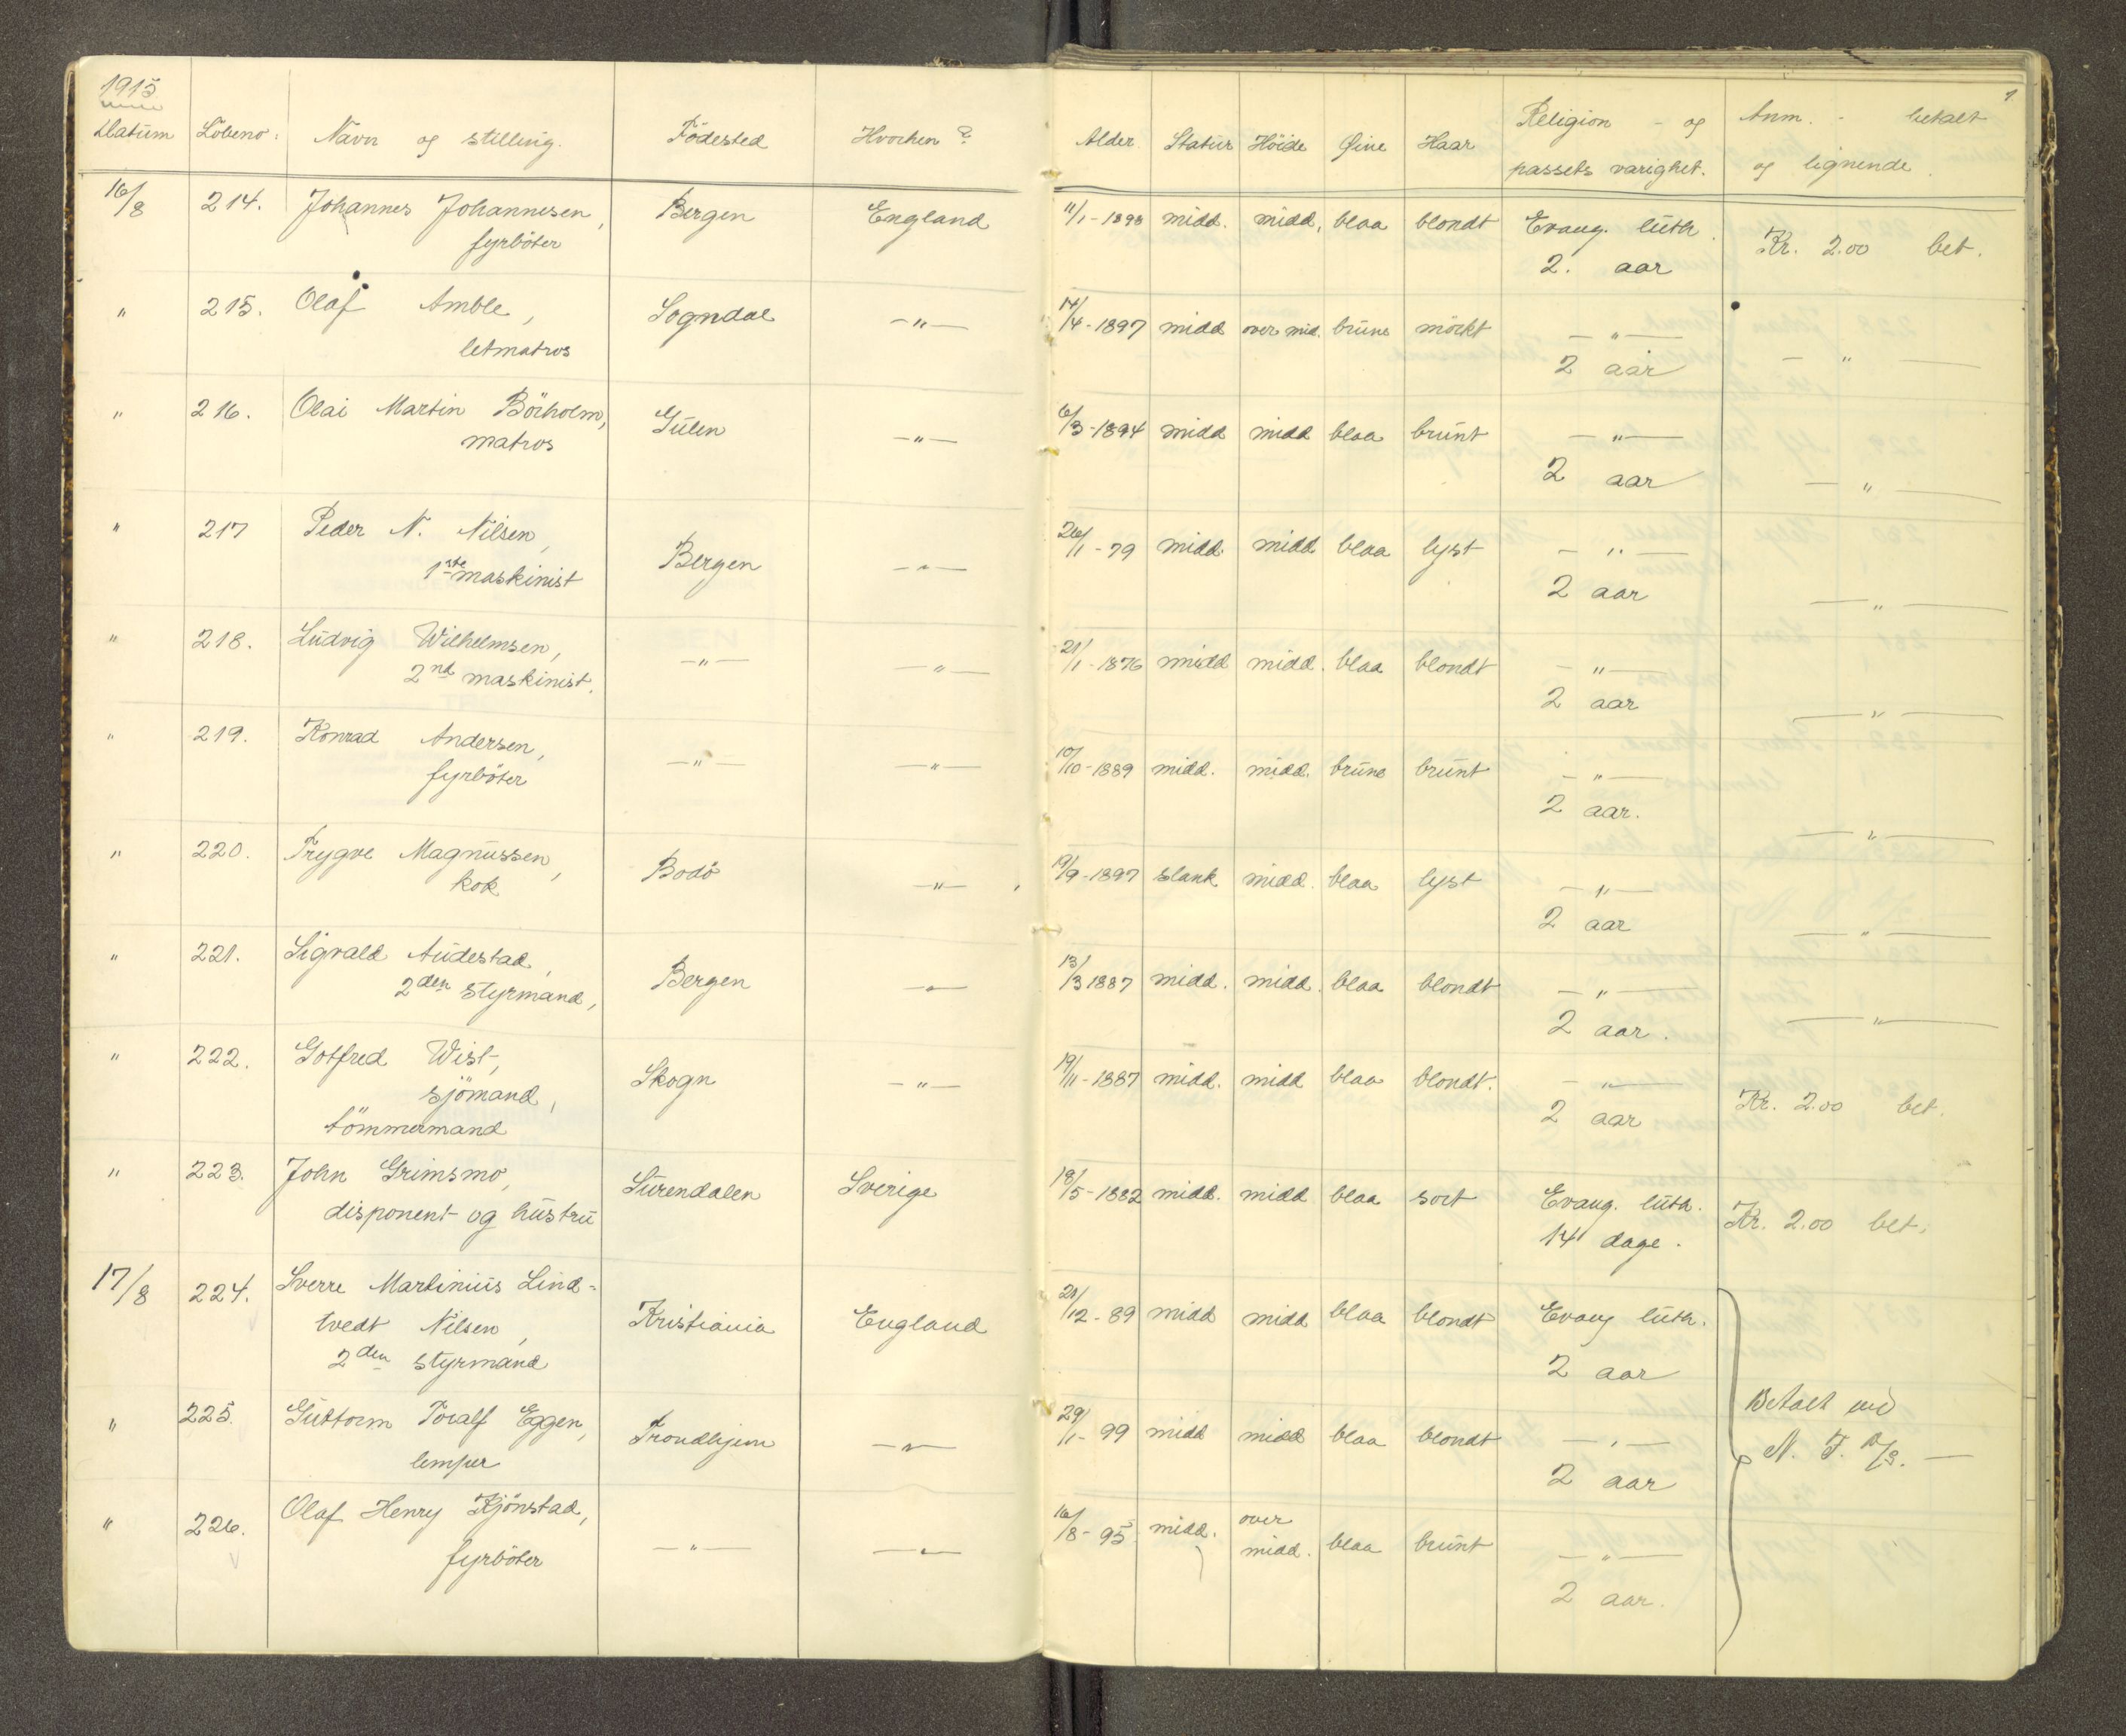 1915
Datum Löbeno: Navn og stilling. Födested Hvorhen? Alder Statur Höide Øine Haar Religion - og passets varighet. Anm. - betalt og lignende. 1
16/8 214. Johannes Johannesen, Bergen England 11/1-1898 midd. midd. blaa blondt Evang. luth.
fyrböter 2. aar Kr. 2.00 bet.
" 215. Olaf Amble, Sogndal —"— 14/4-1897 midd over mid. brune mörkt —"—
letmatros 2 aar — " —
" 216. Olai Martin Börholm, Gulen —"— 6/3-1894 midd midd blaa brunt —"—
matros 2 aar — " —
" 217 Peder N. Nilsen, Bergen —"— 26/1-79 midd. midd blaa lyst —"—
1ste maskinist 2 aar — " —
" 218. Ludvig Wilhelmsen, —"— —"— 21/1-1876 midd midd. blaa blondt —"—
2nd maskinist. 2 aar — " —
" 219. Konrad Andersen, —"— —"— 10/10-1889 midd. midd. brune brunt —"—
fyrböter 2 aar. — " —
" 220. Trygve Magnussen, Bodö —"— 19/9-1897 slank midd. blaa lyst —"—
kok 2 aar — " —
" 221. Sigvald Audestad, Bergen —"— 13/3 1887 midd. midd. blaa blondt —"—
2den styrmand, 2 aar. — " —
" 222. Gotfred Wist, Skogn —"— 19/11-1887 midd. midd blaa blondt. —"—
sjömand, 2 aar Kr. 2.00 bet.
tömmermand
" 223. John Grimsmo, Surendalen Sverige 18/5-1882 midd. midd blaa sort Evang. luth.
disponent og hustru 14 dage. Kr. 2.00 bet.
17/8 224. Sverre Martinius Lind-
tvedt Nilsen, Kristiania England 21/12-89 midd midd blaa blondt Evang luth.
2den styrmand 2 aar
" 225. Guttorm Toralf Eggen, Trondhjem —"— 29/1-99 midd midd blaa blondt —"—
lemper 2 aar
Betalt ved
N. T.
" 226. Olaf Henry Kjönstad, —"— —"— 16/8-95 midd. over midd. blaa brunt —"—
fyrböter 2 aar.